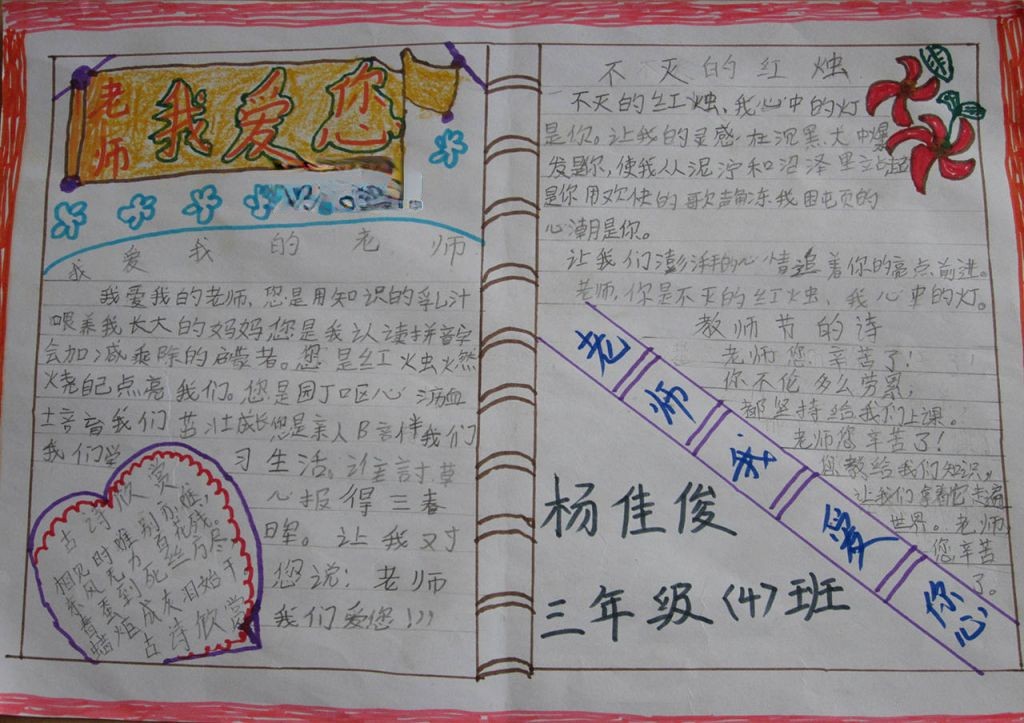 老师
我爱您
我爱我的老师
我爱我的老师,您是用知识的乳汁
喂养我长大的妈妈您是我认读拼音学
会加减乘除的启蒙者。您是红火虫火然
烧自己点亮我们。您是园丁呕心沥血
培育我们茁壮成长您是亲人陪伴我们
我们学习生活。谁言寸草
心报得三春
晖。让我对
您说:老师
我们爱您!!!
古诗欣赏
相见时难别亦难,
东风无力百花残。
春蚕到死丝方尽
蜡炬成灰泪始干
古诗欣赏
不灭的红烛
不灭的红烛、我心中的灯
是你。让我的灵感在沉黑大中爆
发是你,使我从泥泞和沼泽里站起
是你用欢快的歌
心潮是你。
让我们澎湃的心情追着你的亮点前进。
老师,你是不灭的红烛、我心中的灯。
教师节的诗
老师您辛苦了!
你不伦多么劳累,
都坚持给我们上课。
老师您辛苦了!
您教给我们知识,
让我们拿着它走遍
世界。老师
您辛苦
了。
老师我爱你
杨佳俊
三年级(4)班